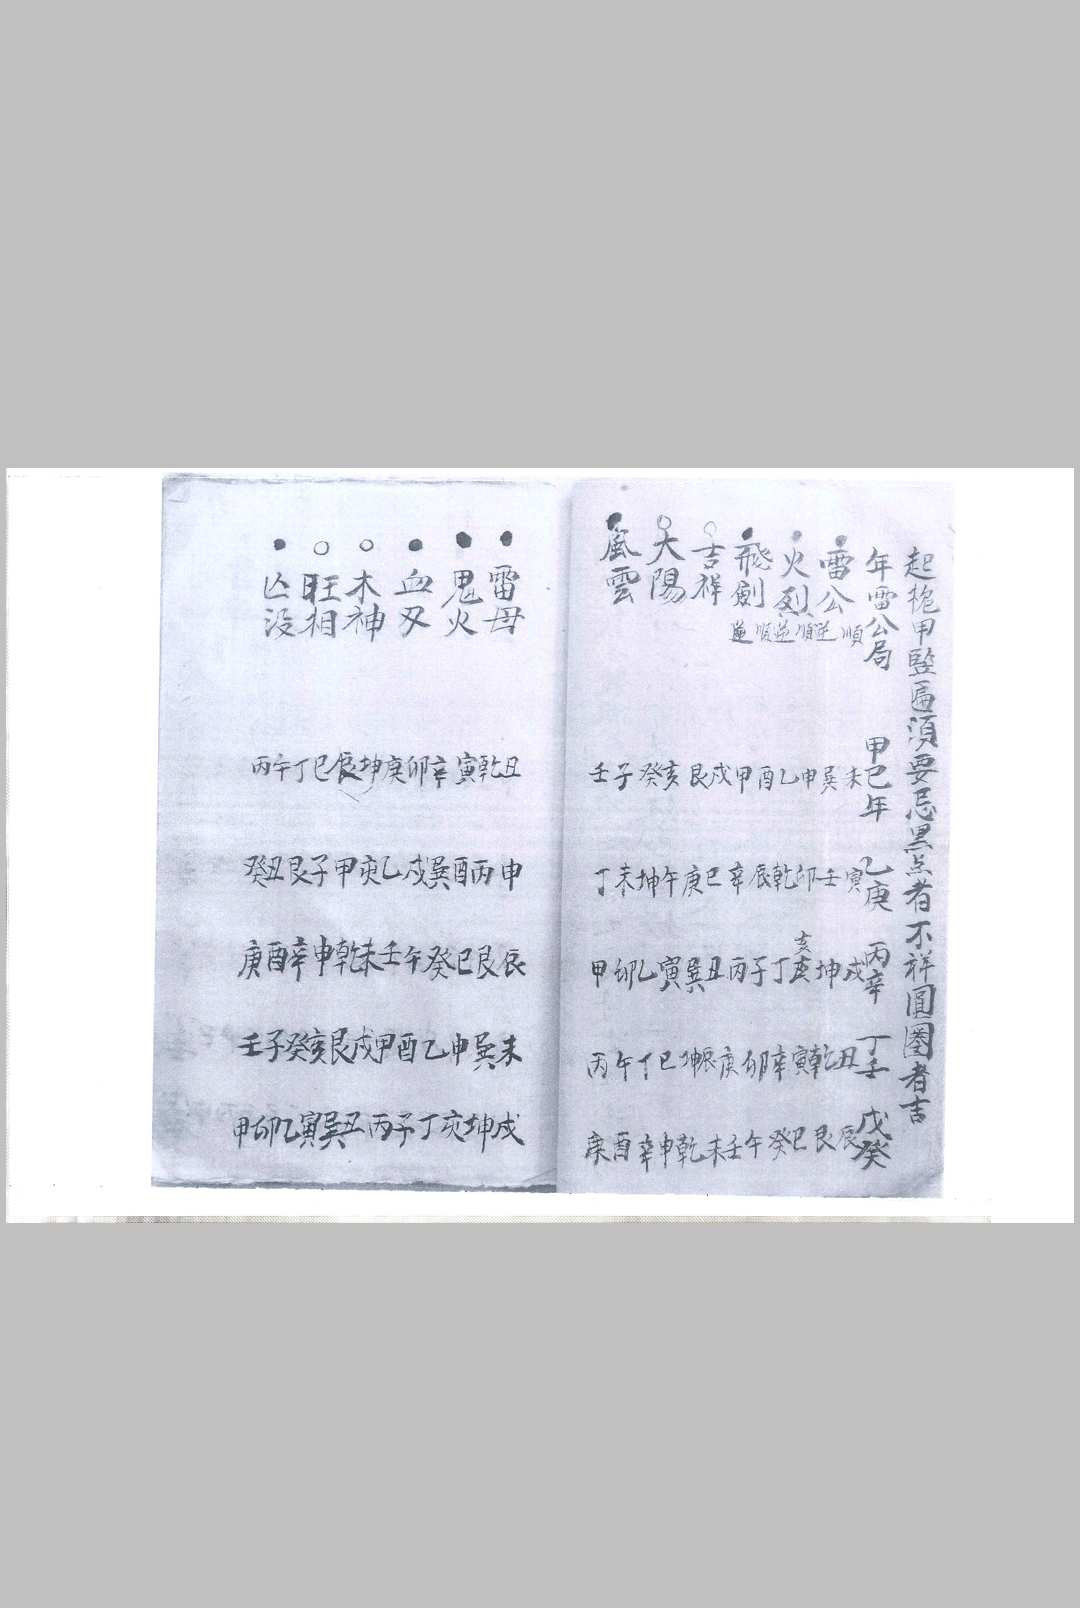 起桅甲竪匾須要忌黑点者不祥圓圈者吉
年雷公局 甲巳年 乙庚 丙辛 丁壬 戊癸
雷公 順逆
火烈 順逆
飛劍 順逆
吉祥
太陽
風雲
未巽申乙酉甲戌艮亥癸子壬
寅壬卯乾辰辛巳庚午坤未丁
戌坤亥亥丁子丙丑巽寅乙卯甲
丑乾寅辛卯庚辰坤巳丁午丙
辰艮巳癸午壬未乾申辛酉庚
雷母
鬼火
血刃
木神
旺相
亾没
丑乾寅辛卯庚坤辰巳丁午丙
申丙酉巽戌乙亥甲子艮丑癸
辰艮巳癸午壬未乾申辛酉庚
未巽申乙酉甲戌艮亥癸子壬
戌坤亥丁子丙丑巽寅乙卯甲